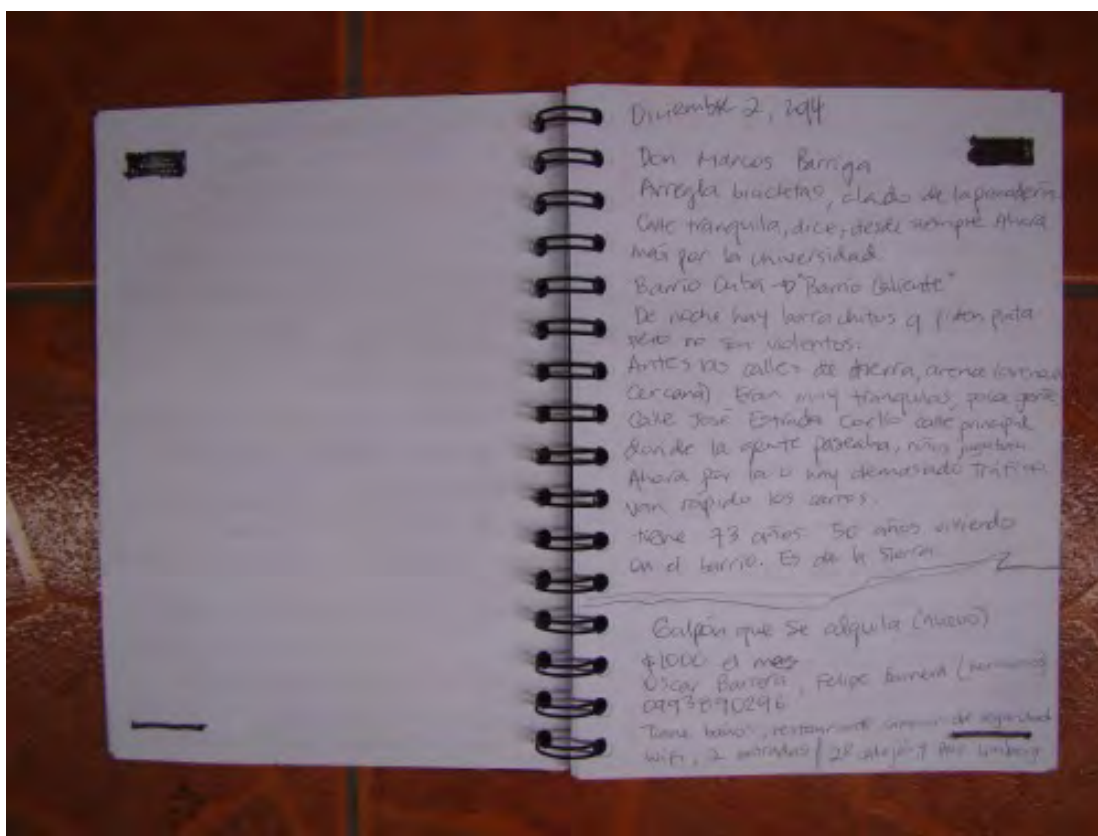 Diciembre 2, 
Don Marcos Barriga
Arregla bicicletas, al lado de la panadería
Calle tranquila, dice, desde siempre Ahora
más por la universidad.
Barrio Cuba → "Barrio Caliente"
De noche hay borrachitos q piden plata
pero no son violentos.
Antes las calles de tierra, arena
cercana) Eran muy tranquilas, poca gente,
Calle José Estrada Coello calle principal
donde la gente paseaba, niños jugaban.
Ahora por la U hay demasiado tráfico
van rápido los carros.
tiene 73 años 50 años viviendo
en el barrio. Es de la Sierra.
Galpón que se alquila (nuevo)
$1000 el mes
Oscar Barrera, Felipe Barrera (hermanos)
0993890296
Tiene baños, restaurante de seguridad
wifi, 2 entradas /